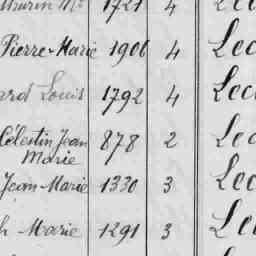 Mie 1721
Pierre-Marie 1906 4 Lec
ard Louis 1792 4 Lec
Célestin Jean 878 2 Lec
Marie
Jean-Marie 1330 3 Lec
h Marie 1291 3 Lec